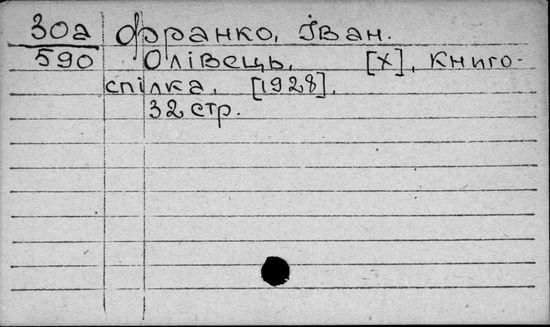 30а Франко, Іван.
590 Олівець. [Х], Книго-
спілка, [1928].
32 стр.